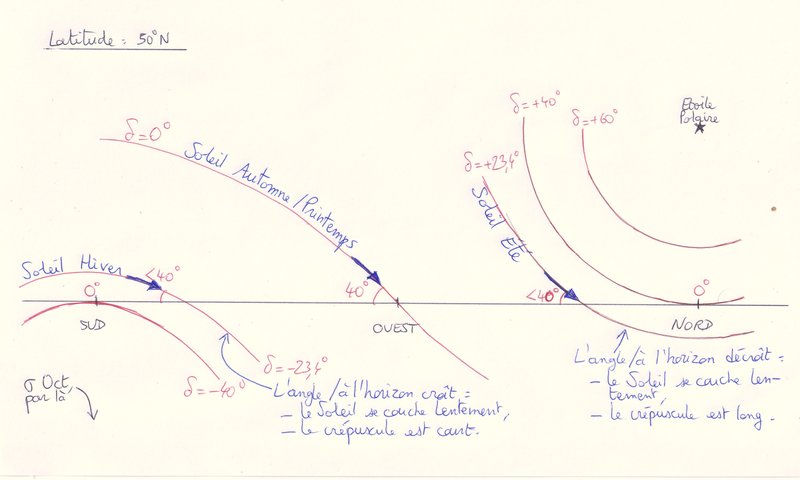 Latitude = 50°N
δ=0°
Soleil Automne/Printemps
δ=+40°
δ=+60°
Etoile
Polaire
δ=+23,4°
Soleil Eté
Soleil Hiver
<40°
0°
40°
<40°
0°
SUD
OUEST
NORD
σ Oct,
par là
δ=-40°
δ=-23,4°
L'angle/à l'horizon croît =
- le Soleil se couche lentement,
- le crépuscule est court.
L'angle/à l'horizon décroît =
- le Soleil se couche len-
tement,
- le crépuscule est long.